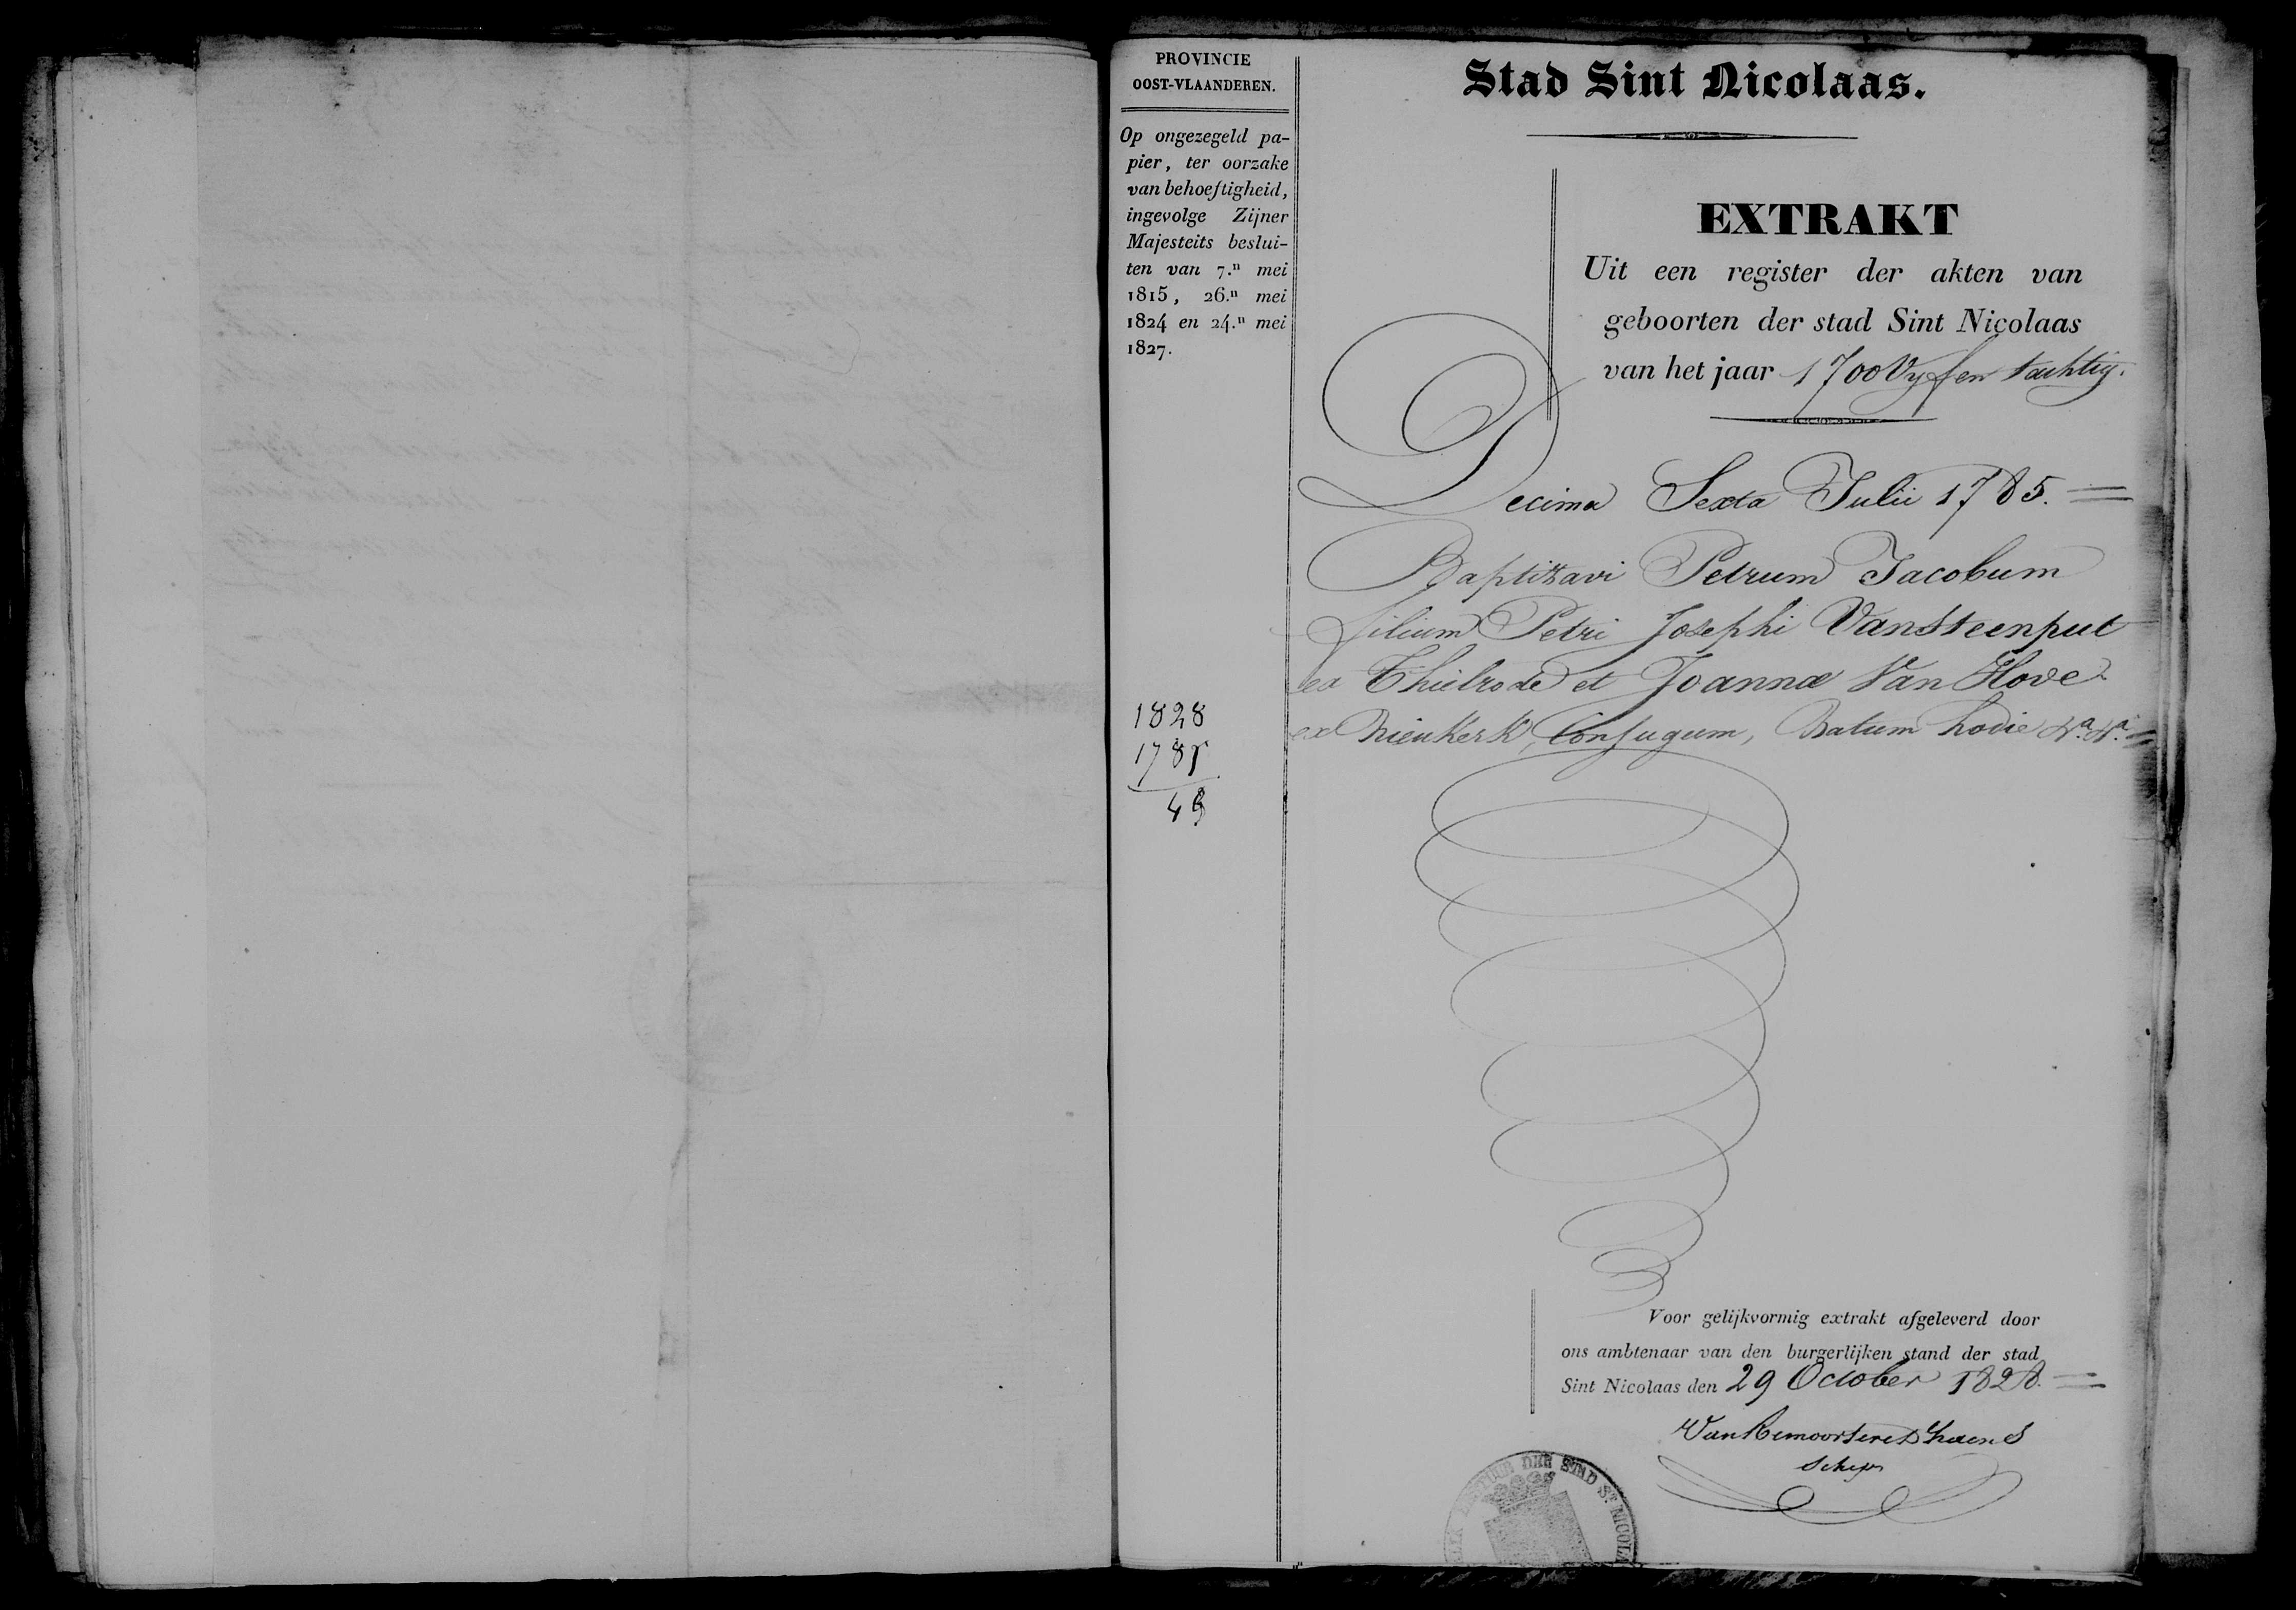 PROVINCIE
OOST-VLAANDEREN.
Op ongezegeld pa-
pier, ter oorzake
van behoeftigheid,
ingevolge Zijner
Majesteits beslui-
ten van 7.n mei
1815, 26.n mei
1824 en 24.n mei
1827.
1828
1785
43
Stad Sint Nicolaas.
EXTRAKT
Uit een register der akten van
geboorten der stad Sint Nicolaas
van het jaar 1700 Vyf en tachtig.
Decima Sexta Julii 1785.
Baptizavi Petrum Jacobum
filium Petri Josephi Vansteenput
ex Thielrode et Joannæ Van Hove
ex Nieukerk, Conjugum, Natum hodie
Voor gelijkvormig extrakt afgeleverd door
ons ambtenaar van den burgerlijken stand der stad
Sint Nicolaas den 29 October 1828.
Schepn
DER STAD St NICOLA